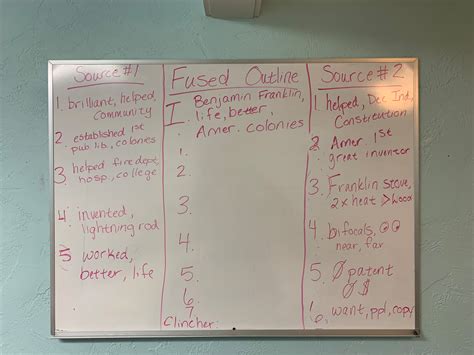 Source #1
1. brilliant, helped,
community
2. established 1st
pub. lib., colonies
3. helped fire dept,
hosp., college
4. invented,
lightning rod
5 worked,
better, life
Fused Outline
I. Benjamin Franklin,
life, better,
Amer. colonies
1.
2.
3.
4.
5.
6.
7.
Clincher:
Source #2
1. helped, Dec Ind,
Constitution
2. Amer 1st
great inventor
3. Franklin stove,
2x heat > wood
4. bifocals,
near, far
5. Ø patent
Ø $
6. want, ppl, copy